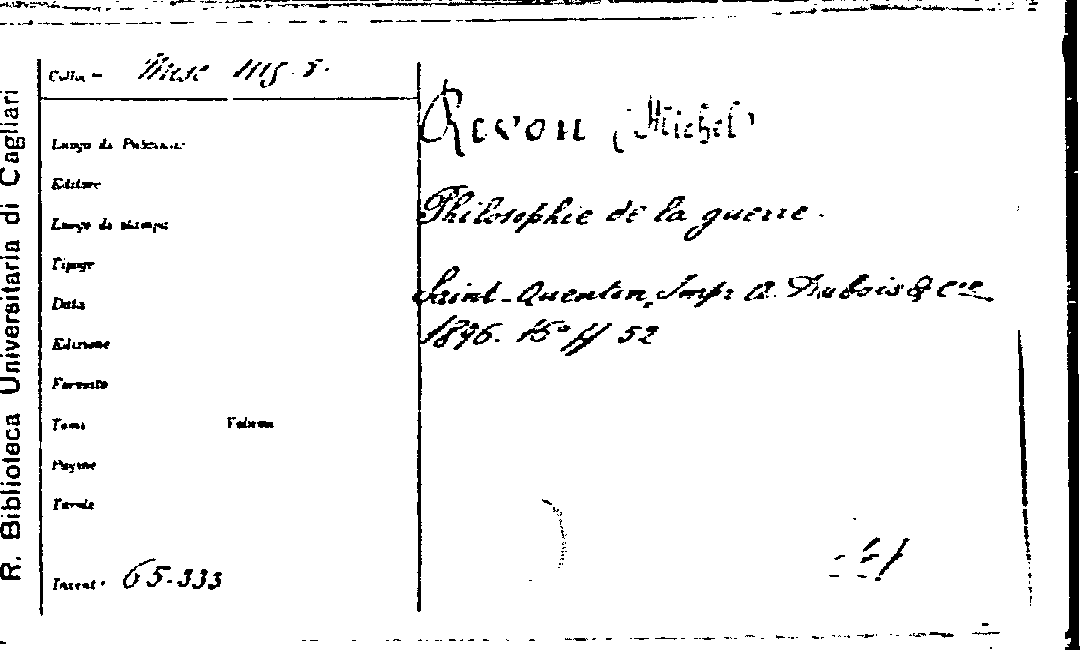 R. Biblioteca Universitaria di Cagliari
Colloc Misc 1115. 5.
Luogo di Pubblicaz.
Editore
Luogo di stampa
Tipogr
Data
Edizione
Formato
Tomi Volume
Pagine
Tavole
Invent. 65.333
Revon (Michel)
Philosophie de la guerre.
Saint-Quentin, Impr A. Dubois & Cie
1896. 16° ff 52